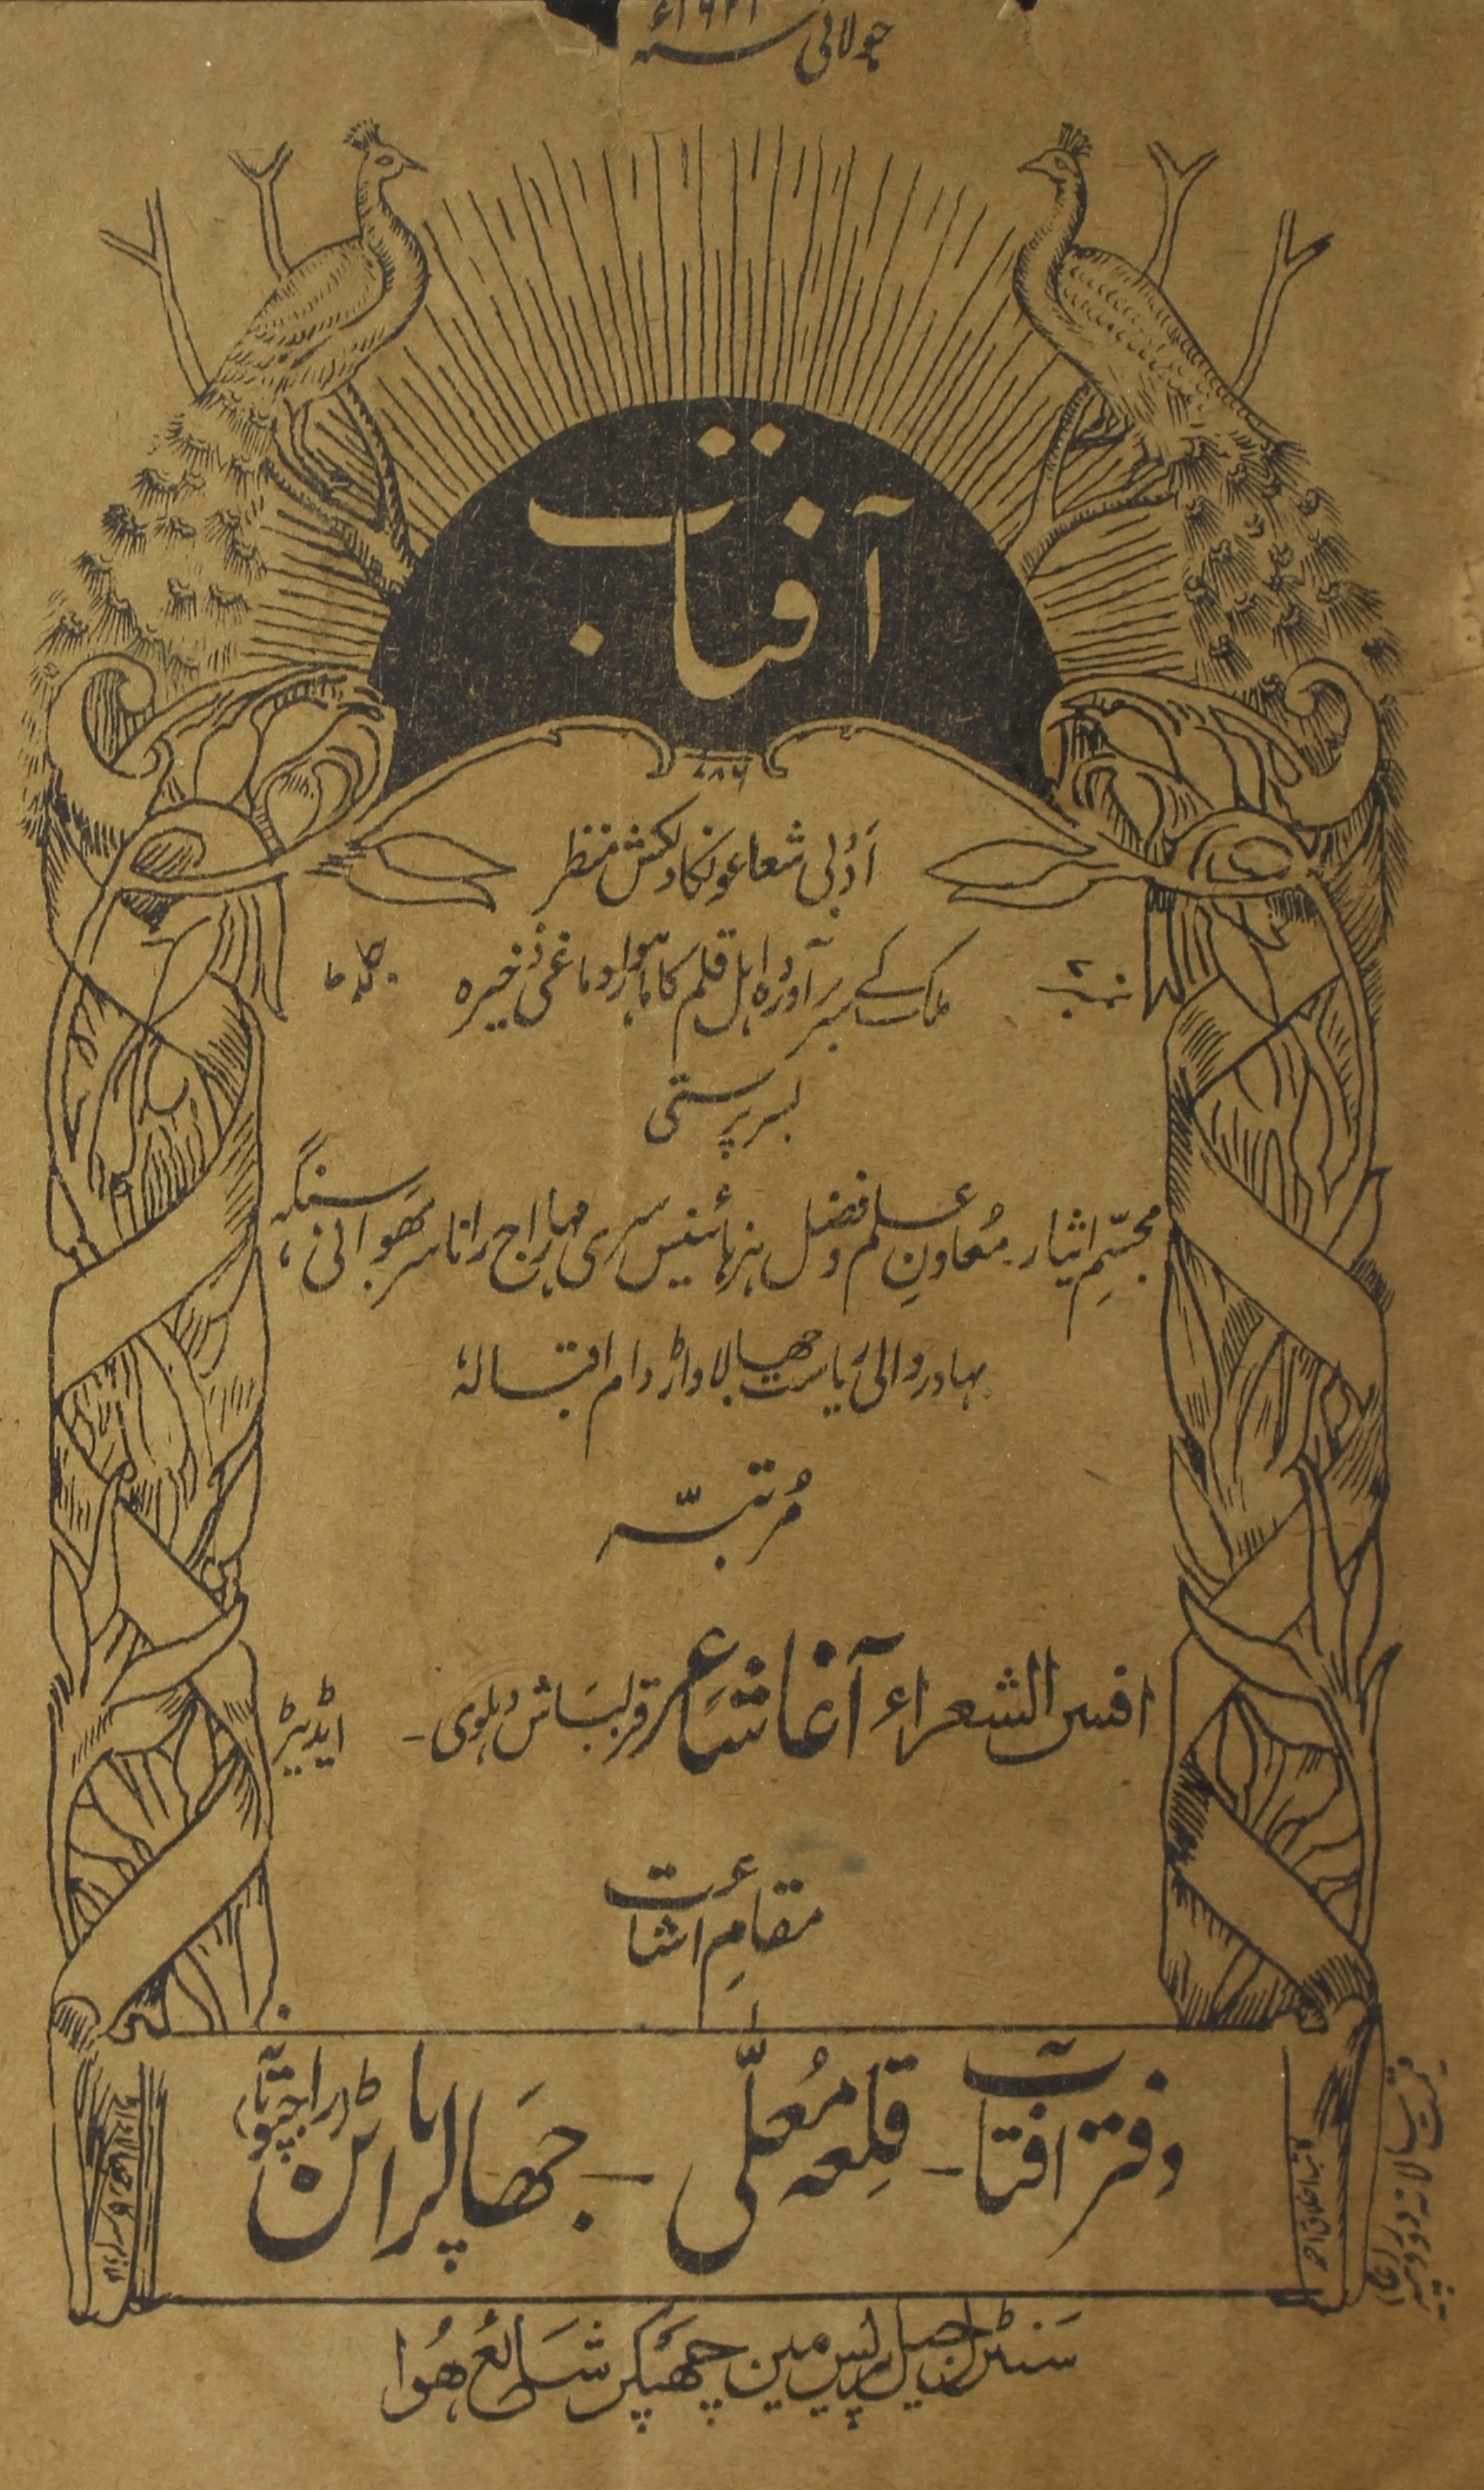 جولائی سنہ ۱۹۲۱ء
آفتاب
۷۸۶
اَدَبی شعاعونکا دلکش منظر
نمبر
ملک کے سربرآوردہ اہل قلم کا ماہوار دماغی ذخیرہ
جلد
بسرپرستی
مجسّمِ ایثار۔ مُعاونِ علم و فضل ہزہائینس سری مہاراج رانا سر بھَوانی سنگہ،
بہادر والیٔ ریاست جھالاواڑ دام اقبالہٗ
مُرتبّہ
افسر الشعراء آغا شاعر قزلباش دہلوی۔ ایڈیٹر
مقامِ اشاعت
دفتر آفتاب۔ قلعہ مُعلّٰی۔ جھَالراپاٹن (راجپوتانہ)
سَنٹرل جیل پریس مین چھَپکر شَائعُ ھُوا